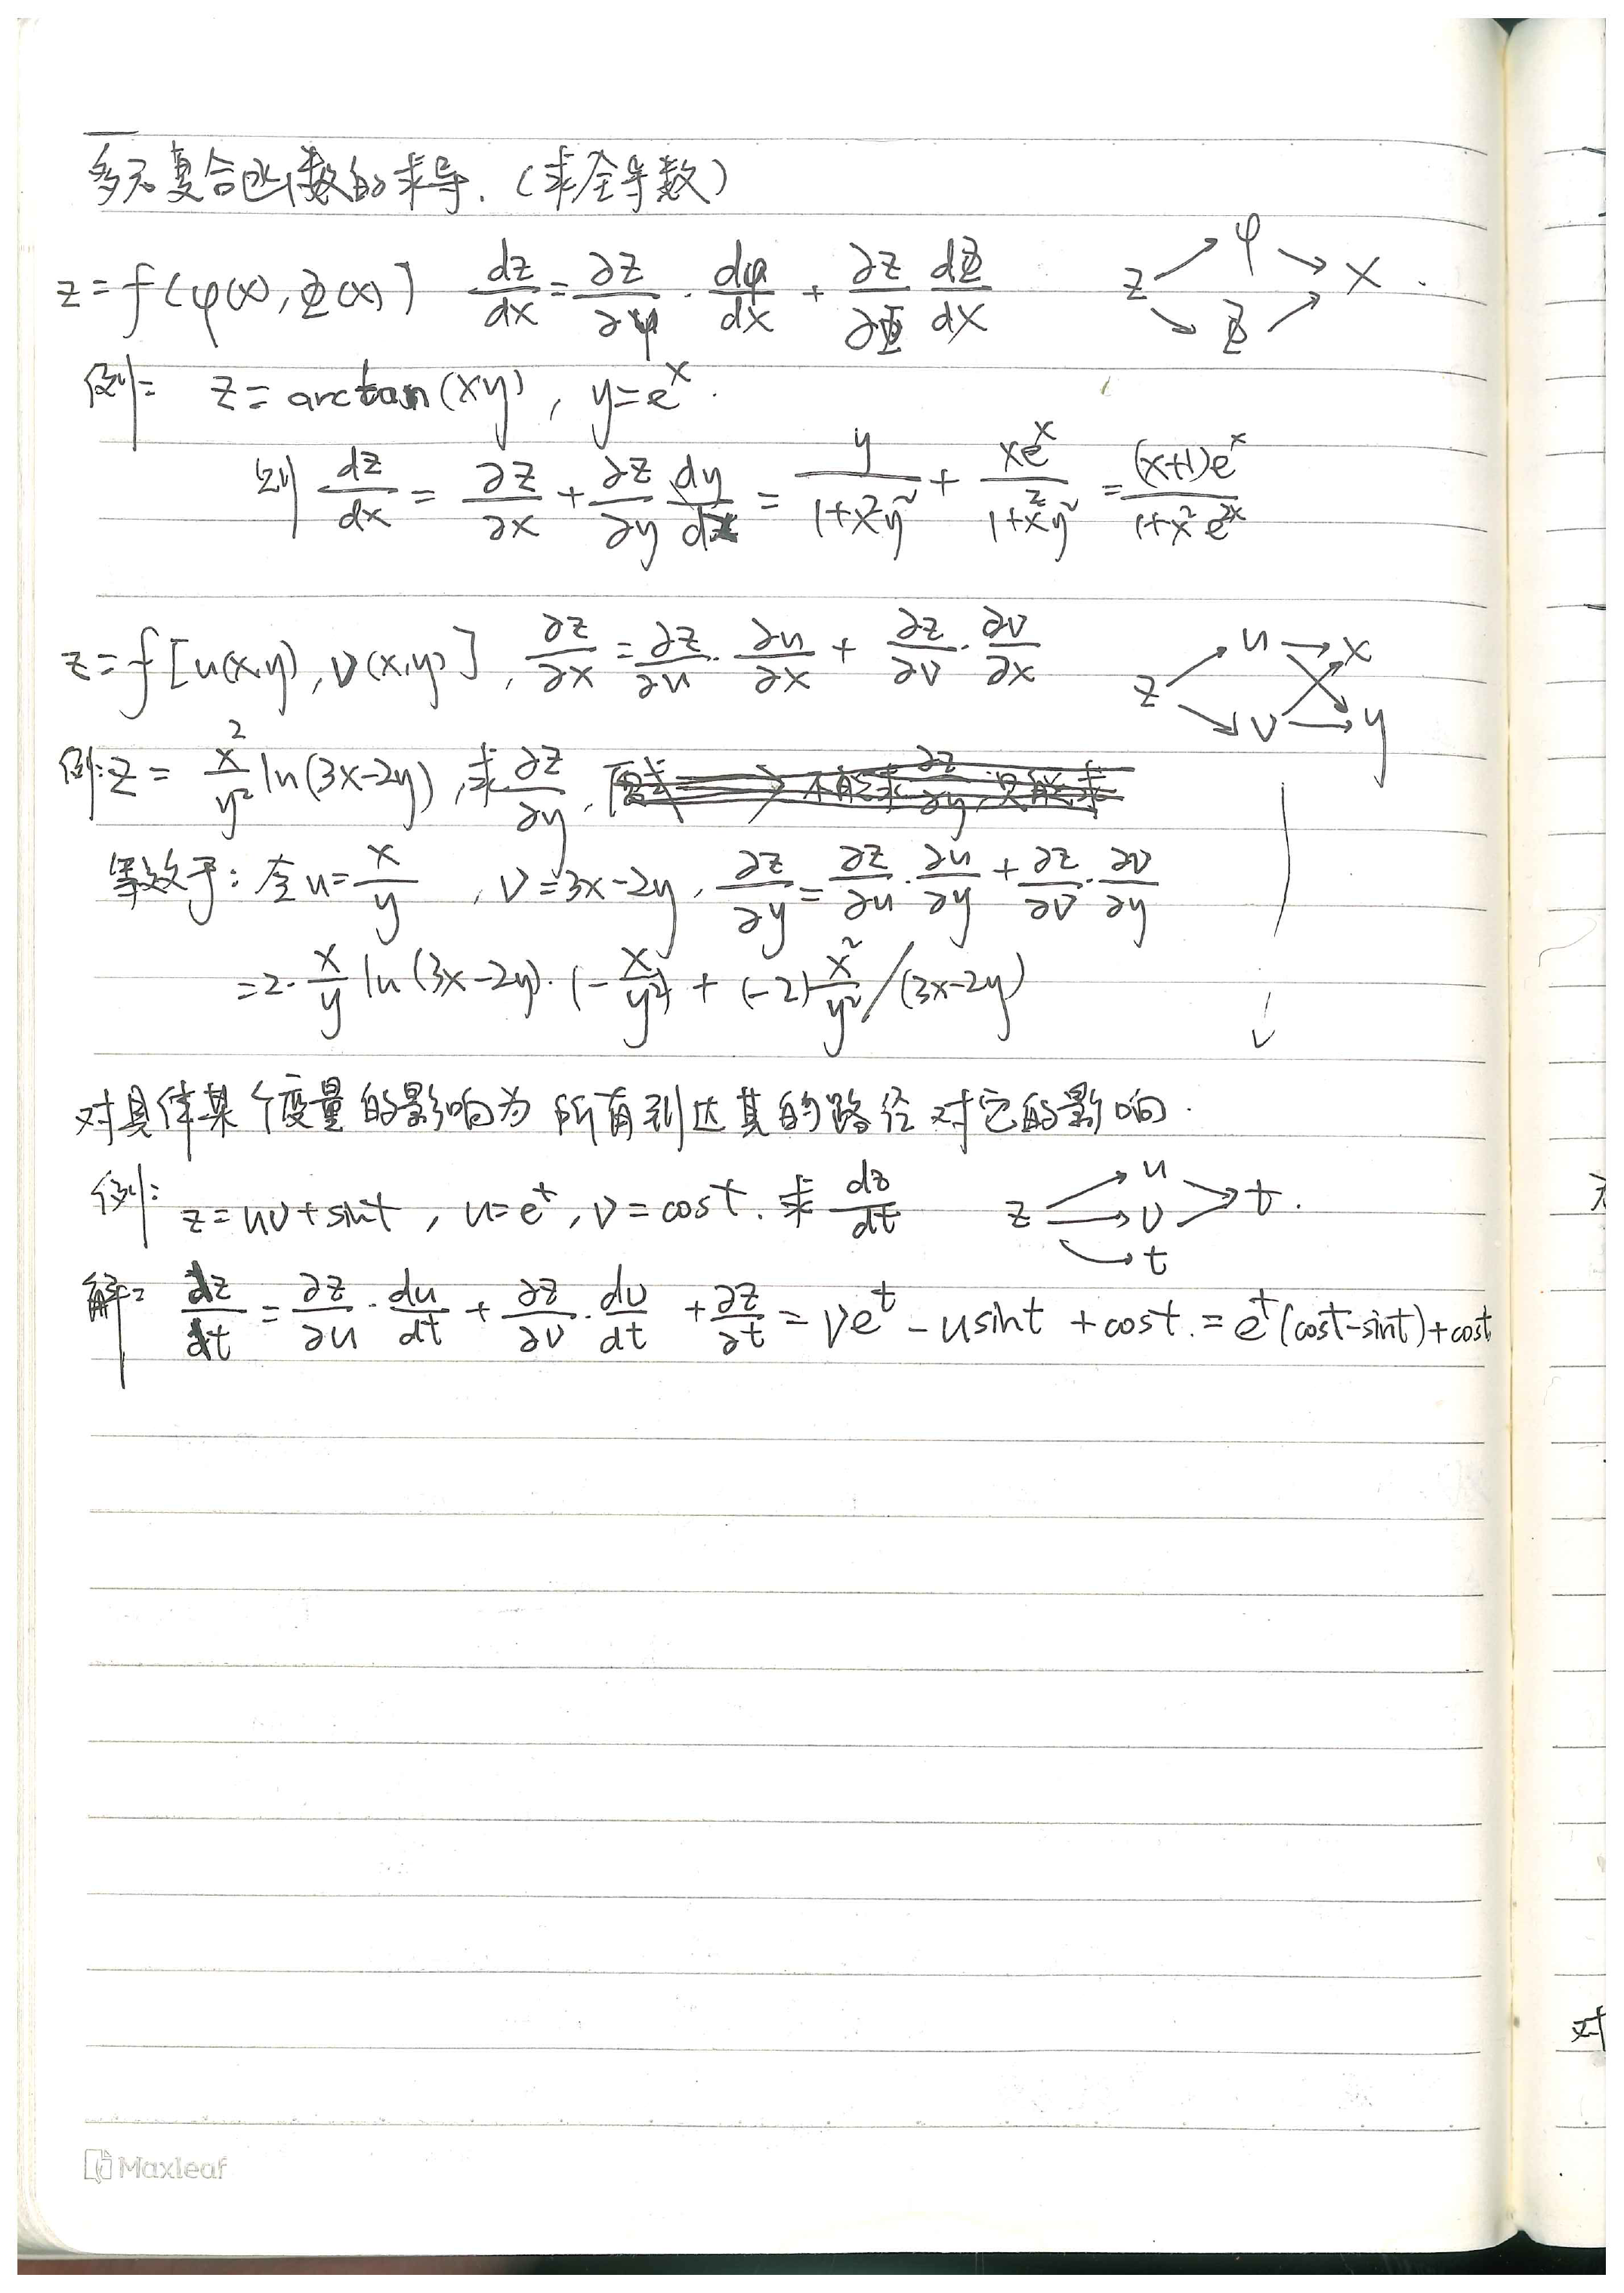 多元复合函数的求导.（求全导数）
z=f[φ(x),Φ(x)] dz/dx=∂z/∂φ·dφ/dx+∂z/∂Φ dΦ/dx z φ Φ x.
例: z=arctan(xy), y=e^x.
则 dz/dx=∂z/∂x+∂z/∂y dy/dx=y/(1+x²y²)+xe^x/(1+x²y²)=(x+1)e^x/(1+x²e^{2x})
z=f[u(x,y),v(x,y)], ∂z/∂x=∂z/∂u·∂u/∂x+∂z/∂v·∂v/∂x z u v x y
例:z=x²/y² ln(3x-2y),求∂z/∂y,
等效于:令u=x/y, v=3x-2y, ∂z/∂y=∂z/∂u·∂u/∂y+∂z/∂v·∂v/∂y
=2·x/y ln(3x-2y)·(-x/y²)+(-2)x²/y²/(3x-2y)
对具体某个变量的影响为所有到达其的路径对它的影响.
例: z=uv+sint, u=e^t, v=cost. 求dz/dt z u v t t.
解: dz/dt=∂z/∂u·du/dt+∂z/∂v·dv/dt+∂z/∂t=ve^t-usint+cost.=e^t(cost-sint)+cost
对
Maxleaf